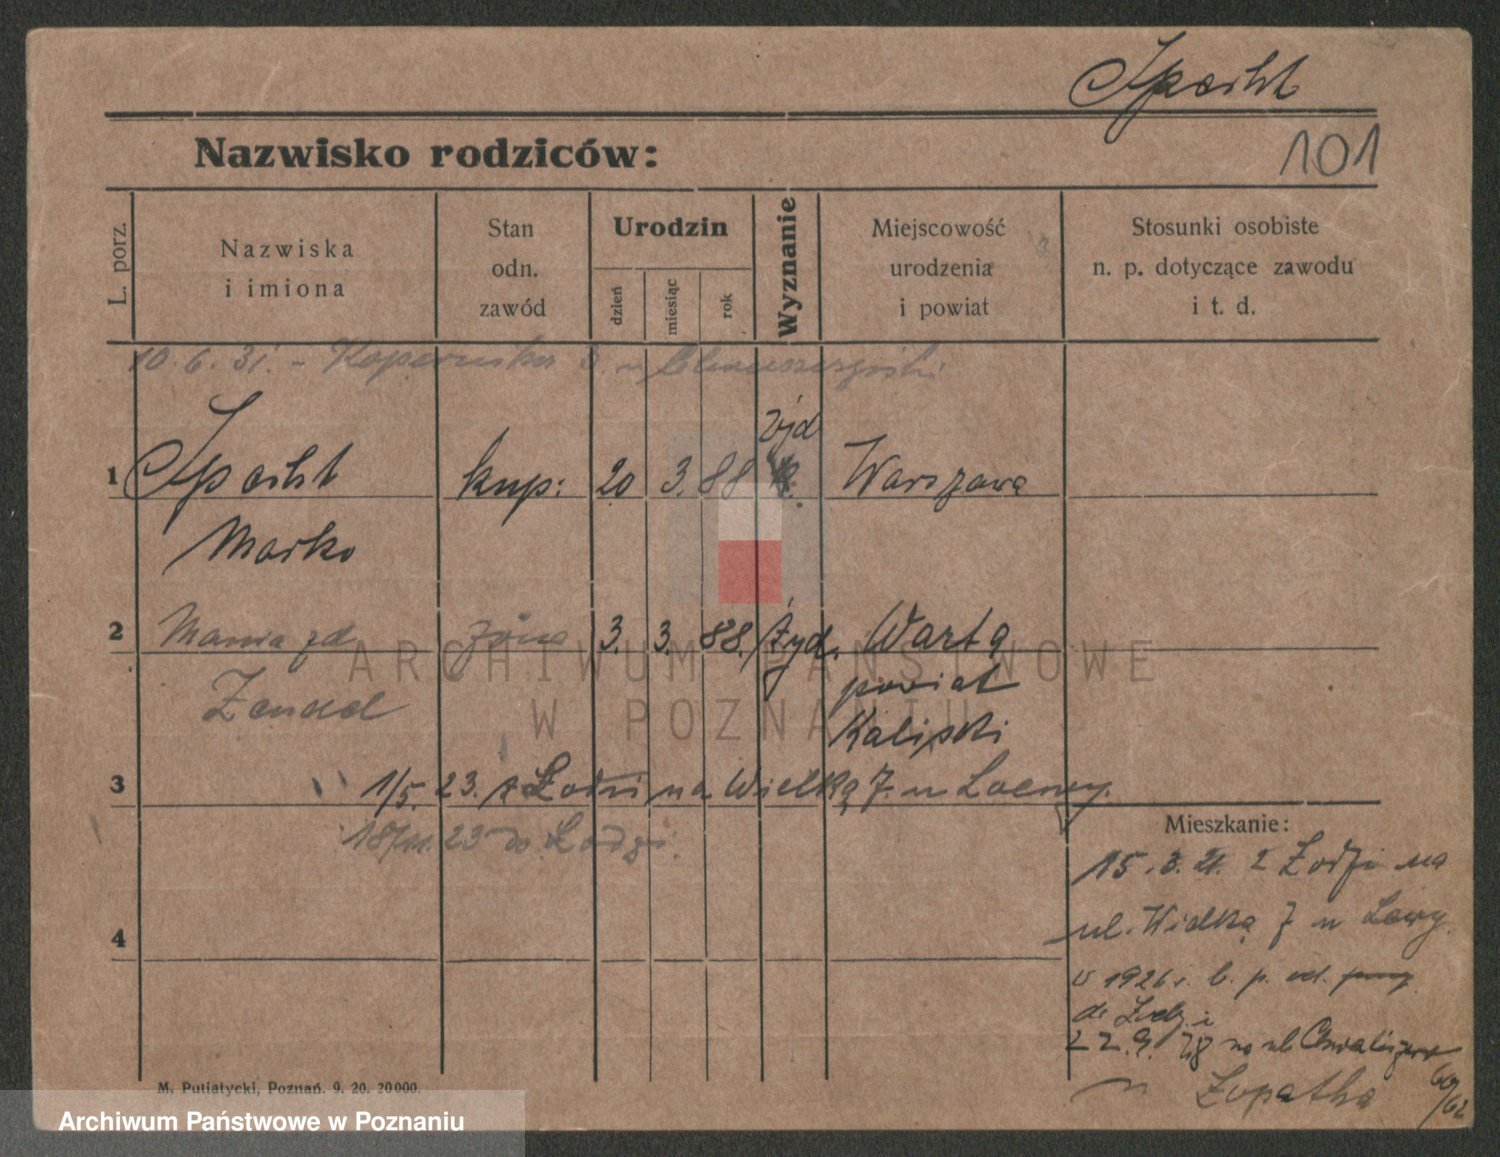 Specht
101
Nazwisko rodziców:
L. porz.
Nazwiska
i imiona
Stan
odn.
zawód
Urodzin
dzień
miesiąc
rok
Wyznanie
Miejscowość
urodzenia
i powiat
Stosunki osobiste
n. p. dotyczące zawodu
i t. d.
10.6.31. - Kopernika 3. u
żyd
1 Specht kup: 20 3. 88 Warszawa
Marko
2 Mania zd żona 3. 3. 88. żyd. Warta
Zand
powiat
Kaliski
3 1/5. 23. z Łodzi na Wielką 7. u
23 do Łodzi.
Mieszkanie:
15.3.21. z Łodzi na
ul. Wielką 7 u
w 1926 r. b. p. od.
do Łodzi
22.9.28 na ul Chwaliszewo
60/62
u Łopatka
4
M. Putiatycki, Poznań. 9. 20. 20000.
ARCHIWUM PAŃSTWOWE
W POZNANIU
Archiwum Państwowe w Poznaniu